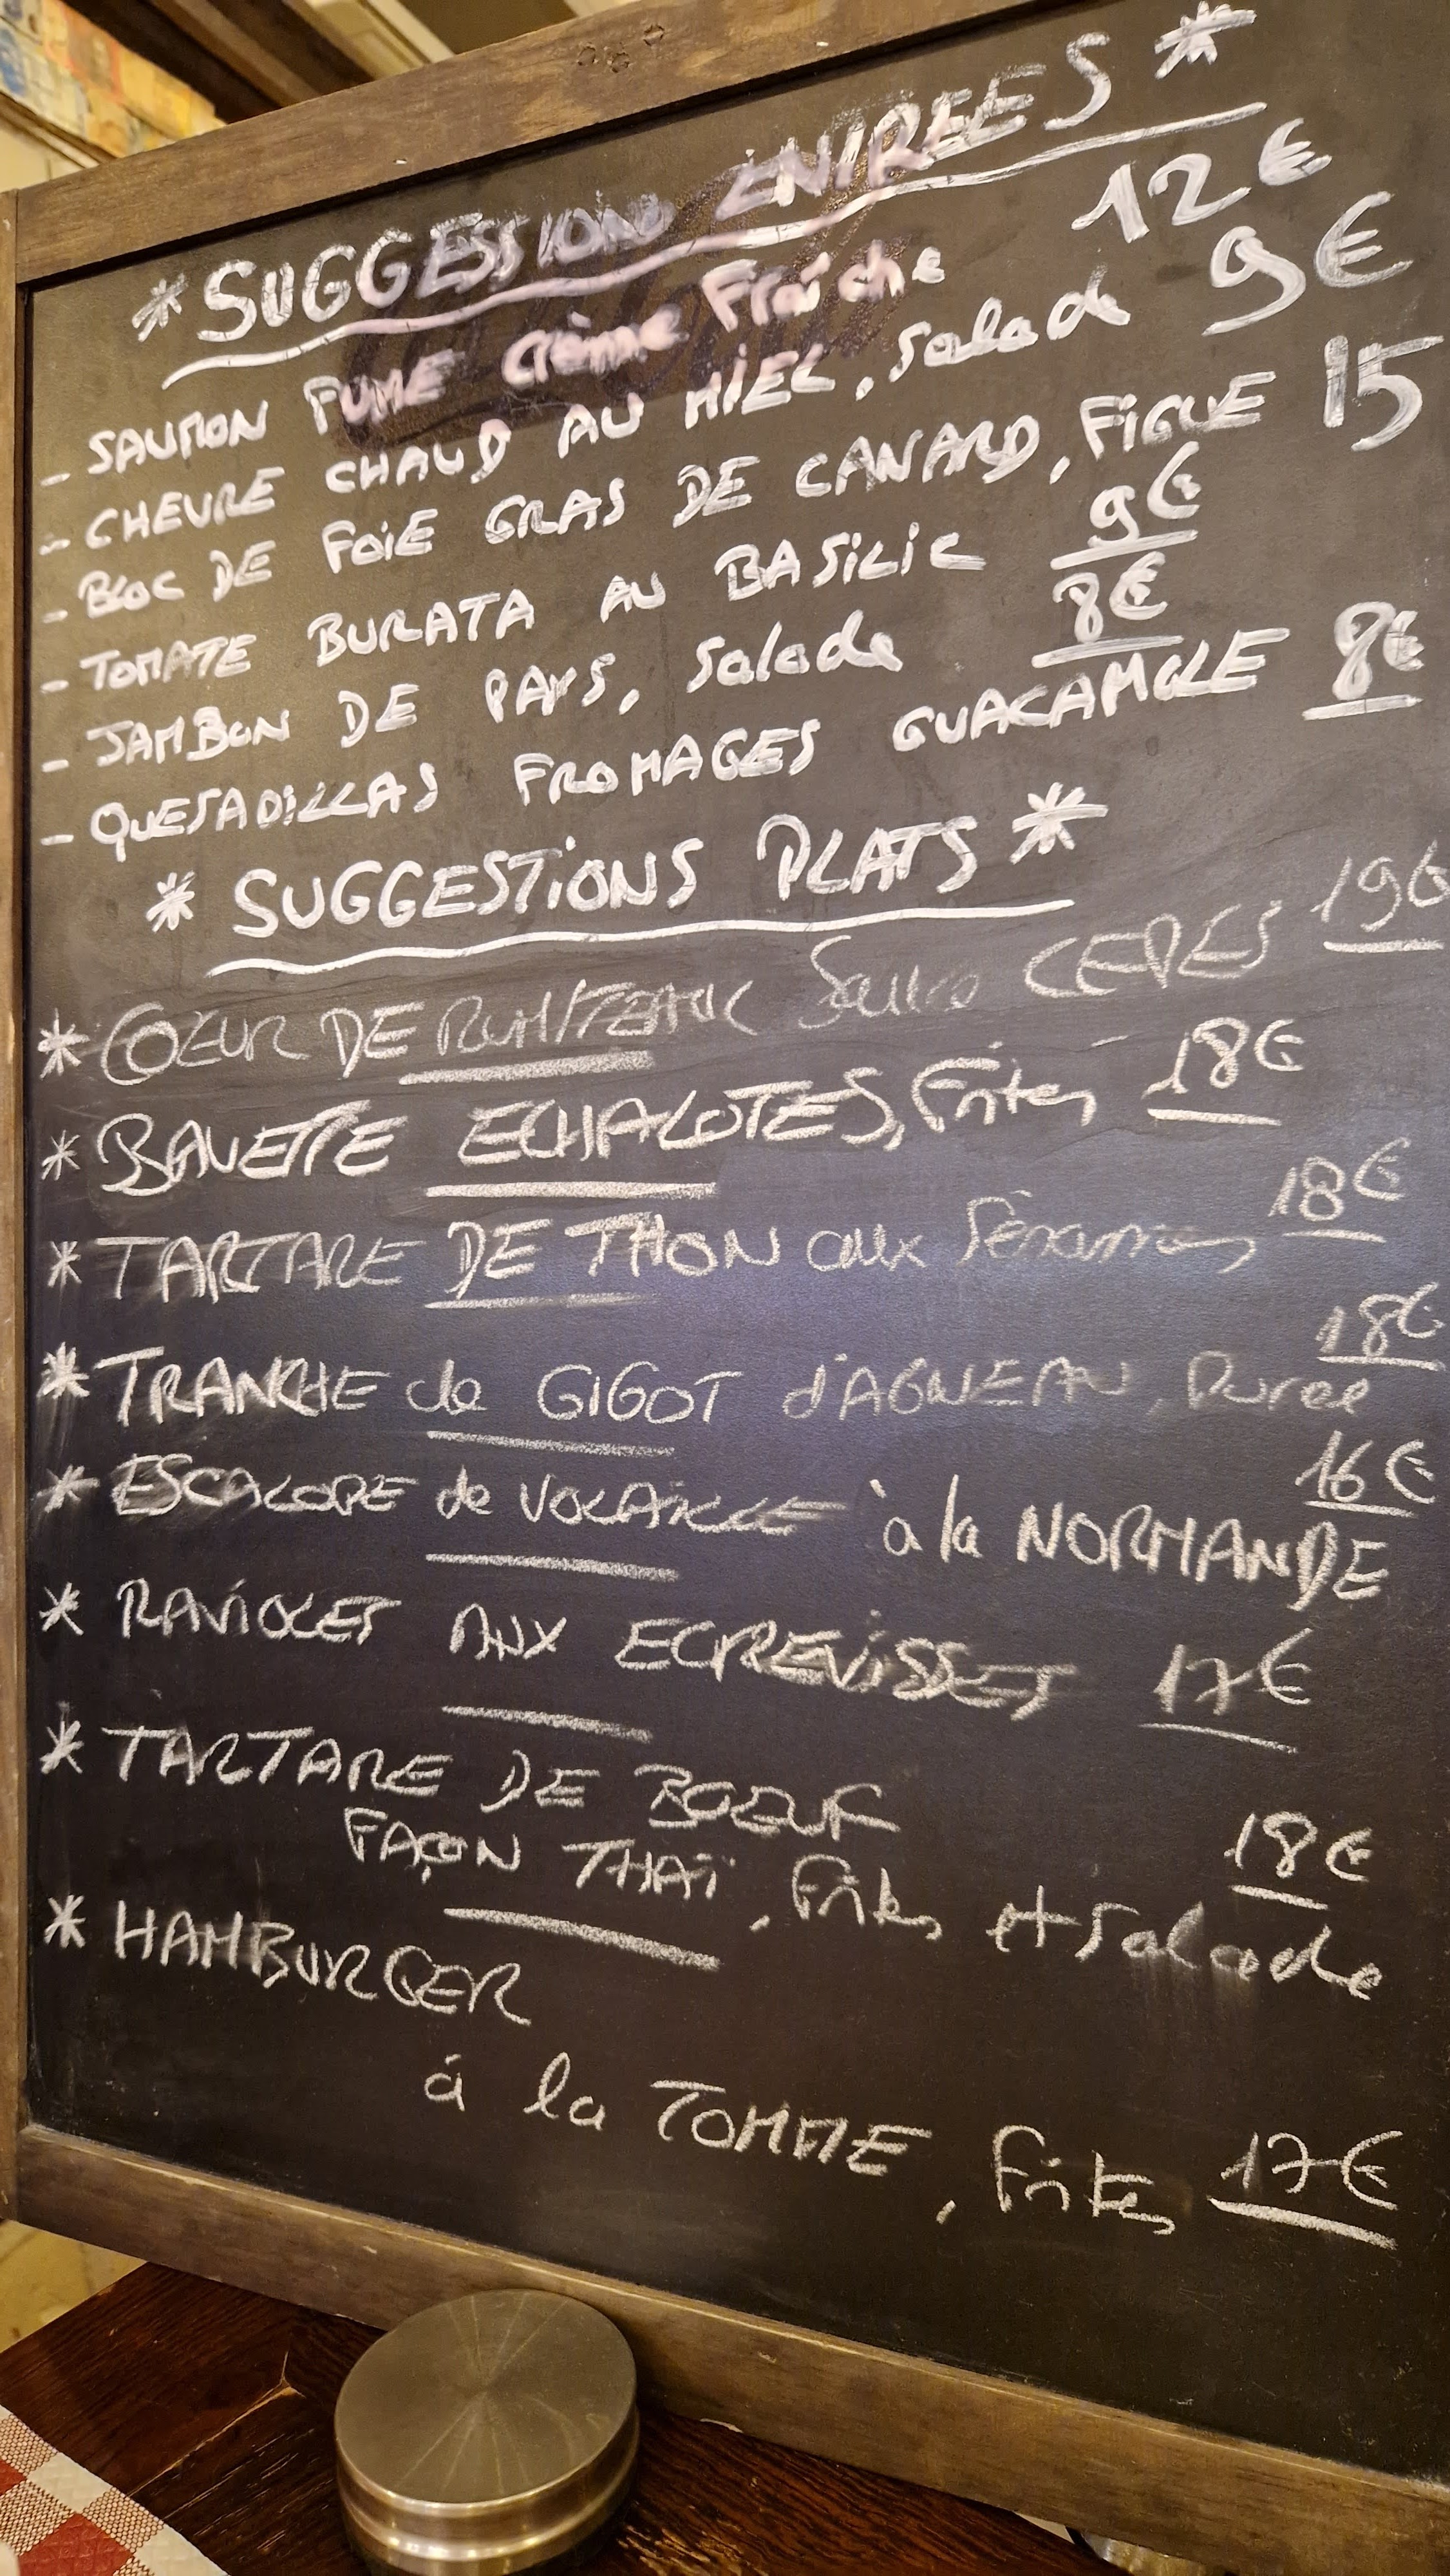 * SUGGESSION ENTREES *
- SAUMON FUME Crème Fraîche 12€
- CHEVRE CHAUD AU MIEL, Salade 9€
- BLOC DE FOIE GRAS DE CANARD, FIGUE 15
- TOMATE BURATA AU BASILIC 9€
- JAMBON DE PAYS, Salade 8€
- QUESADILLAS FROMAGES GUACAMOLE 8€
* SUGGESTIONS PLATS *
* COEUR DE RUMSTEAK Sauce CEPES 19€
* BAVETTE ECHALOTES, Frites 18€
* TARTARE DE THON aux Sésames 18€
* TRANCHE de GIGOT d'AGNEAU, Purée 18€
* ESCALOPE de VOLAILLE à la NORMANDE 16€
* RAVIOLES AUX ECREVISSES 17€
* TARTARE DE BOEUF
FAÇON THAÏ, Frites et Salade 18€
* HAMBURGER
à la TOMME, Frites 17€